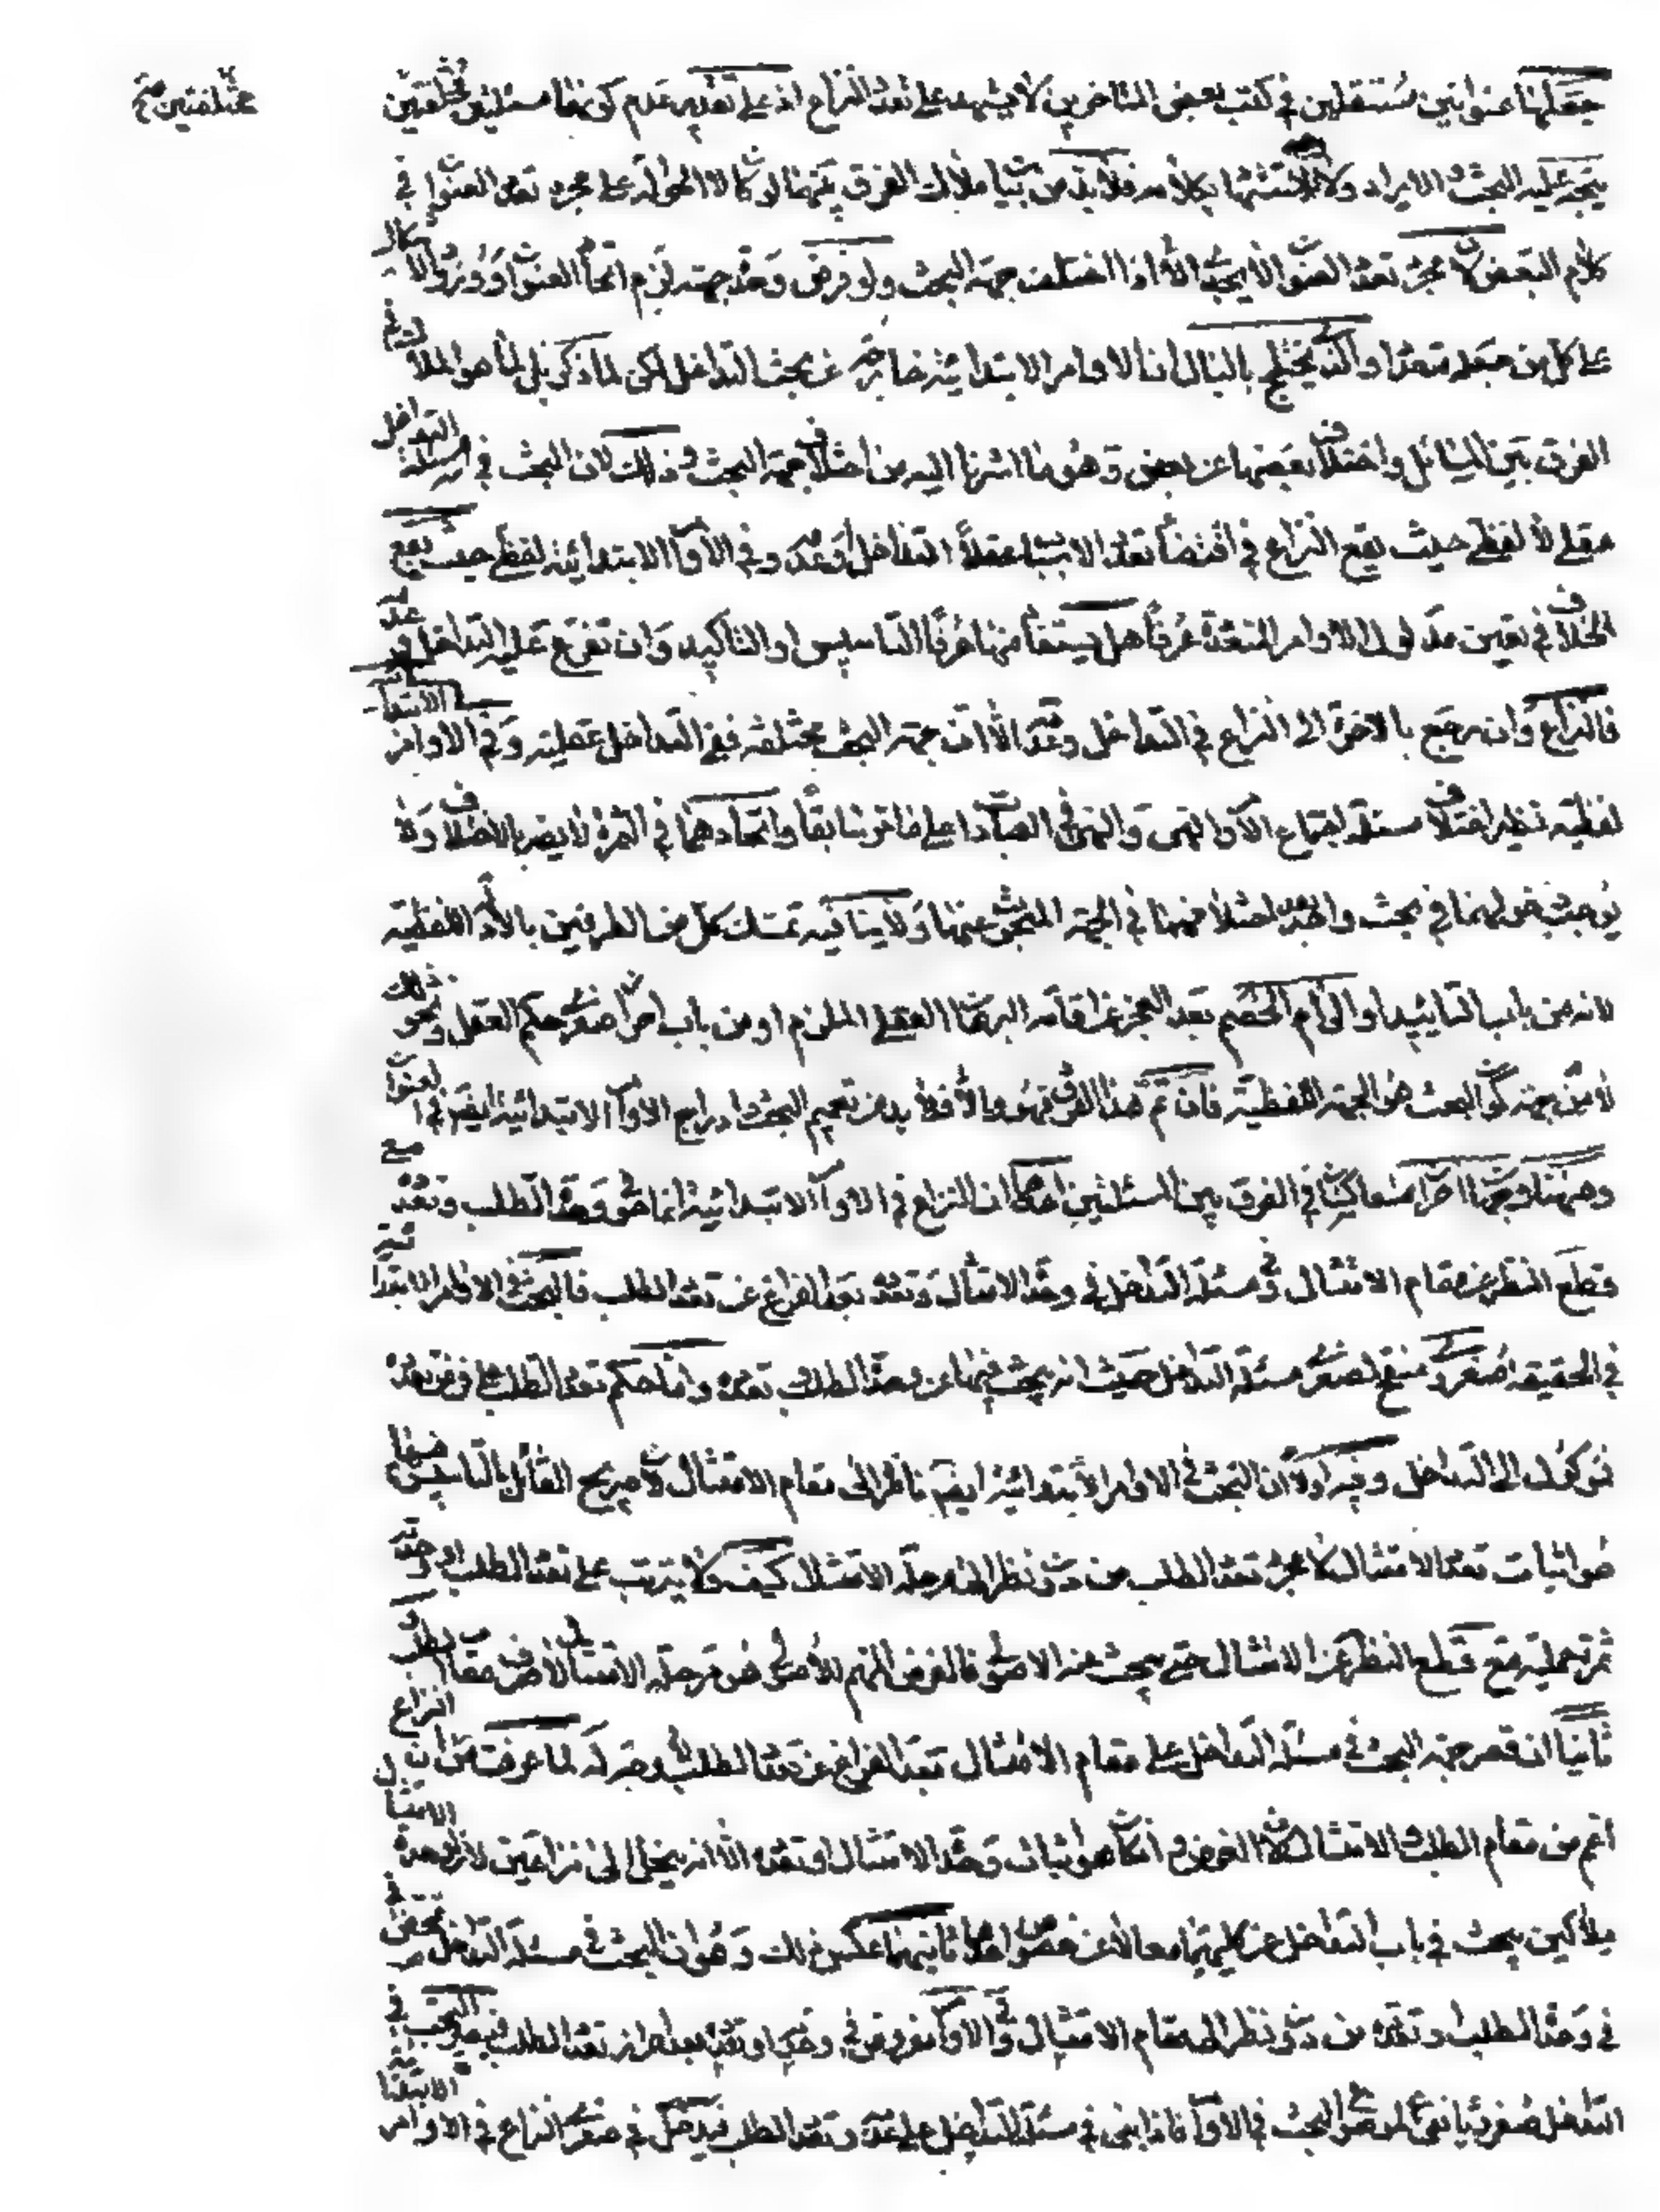 جعلهما عنوانين مستقلين في كتب بعض المتاخرين لا يشهد على تعدد النزاع اذ على تقدير عدم كونهما مسئلتين مختلفتين
مختلفتين صح
يتجه عليه البحث و الايراد ولا بكلامه فلا بد من بيان ملاك الفرق بينهما لو كان لا الحوالة على مجرد تعدد العنوان في
كلام البعض لان مجرد تعدد العنوان لا يجدى الا اذا اختلف جهة البحث ولو فرض وحدة جهته لزم اتحاد العنوان وورود الاشكال
على كل من جعله متعددا والذي يختلج بالبال ان الاوامر الابتدائية خارجة عن بحث التداخل لكن لا لما ذكر بل لما هو الملاك في
الفرق بين المسائل واختلاف بعضها عن بعض وهو ما اشرنا اليه من اختلاف جهة البحث وذلك لان البحث في مسئلة التداخل
عقلي لا لفظي حيث يقع النزاع في اقتضاء تعدد الاسباب عقلا التداخل وعدمه وفي الاوامر الابتدائية لفظي حيث يقع
الخلاف في تعيين مدلول الاوامر المتعددة عرفا هل يستفاد منها عرفا التاسيس او التاكيد وان تفرع عليه التداخل وعدمه
فالنزاع وان رجع بالاخرة الى النزاع في التداخل وعدمه الا ان جهة البحث مختلفة ففي التداخل عقلية وفي الاوامر الابتدائية
لفظية نظير اختلاف مسئلة اجتماع الامر والنهي والنهي في العبادات على ما مر سابقا واتحادهما في الثمرة لا يضر بالاختلاف ولا
يوجب دخولهما في بحث واحد بعد اختلافهما في الجهة المبحوث عنها ولا ينافيه تمسك كل من الطرفين بالادلة اللفظية
لانه من باب التاييد او الزام الخصم بعد العجز عن اقامة البرهان العقلي الملزم او من باب احراز صغرى حكم العقل ونحو ذلك
لا من جهة كون البحث هو الجهة اللفظية فان تم هذا الفرق فهو والا فلا بد من تعميم البحث وادراج الاوامر الابتدائية ايضا في العنوان
وههنا وجهان اخران متعاكسان في الفرق بين المسئلتين احدهما ان النزاع في الاوامر الابتدائية انما هو في وحدة الطلب وتعدده مع
قطع النظر عن مقام الامتثال وفي مسئلة التداخل في وحدة الامتثال وتعدده بعد الفراغ عن تعدد الطلب فالبحث في الاوامر الابتدائية
في الحقيقة صغروي منقح لصغرى مسئلة التداخل حيث انه يبحث فيها عن وحدة الطلب وتعدده واما حكم تعدد الطلب على فرض تعدده
فموكول الى التداخل وفيه اولا ان البحث في الاوامر الابتدائية ايضا ناظر الى مقام الامتثال لان صريح القائل بالتاسيس فيها
هو اثبات تعدد الامتثال لا مجرد تعدد الطلب من دون نظر الى مرحلة الامتثال كيف ولا يترتب على تعدد الطلب او وحدته
ثمرة عملية مع قطع النظر عن الامتثال حتى يبحث عنه الاصولي فالغرض المهم للاصولي هو مرحلة الامتثال لا صرف مقام الطلب و
ثانيا ان قصر جهة البحث في مسئلة التداخل على مقام الامتثال بعد الفراغ عن تعدد الطلب لا وجه له لما عرفت من ان النزاع
اعم من مقام الطلب والامتثال لان الغرض وان كان هو اثبات وحدة الامتثال او تعدده الا انه ينحل الى نزاعين لان لوحدة الامتثال
ملاكين يبحث في باب التداخل عن كليهما معا لا عن خصوص احدهما ثانيهما عكس ذلك وهو ان البحث في مسئلة التداخل متمحض
في وحدة الطلب وتعدده من دون نظر الى مقام الامتثال وفي الاوامر مفروض في وحدته او تعدده بعد احراز تعدد الطلب فيصير البحث في
التداخل صغرويا لموضوع البحث في الاوامر فاذا بنى في مسئلة التداخل على عدمه وتعدد الطلب فيدخل في صغرى النزاع في الاوامر الابتدائية